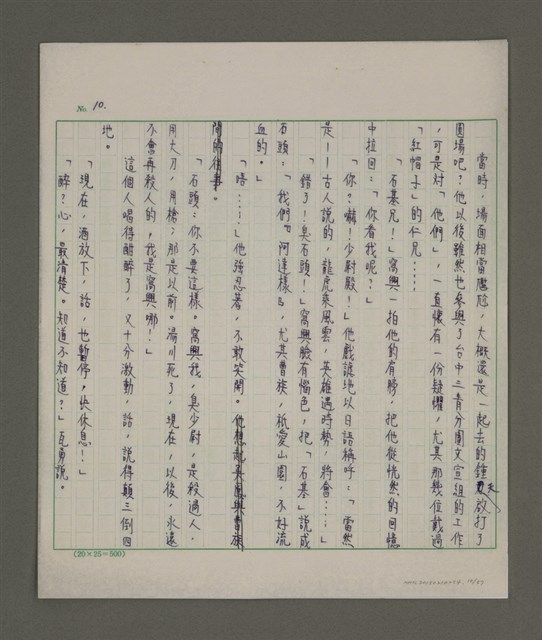 No. 10.
當時，場面相當尷尬，大概還是一起去的鍾天放打了
圓場吧？他以後雖然也參與了台中三青分團文宣組的工作
，可是対「他們」，一直懷有一份疑懼，尤其那幾位戴過
「紅帽子」的仁兄……
「石基兄！」窩興一拍他的肩膀，把他從恍然的回憶
中拉回：「你看我呢？」
「你？嚇！少尉殿！」他戲謔地以日語稱呼：「當然
是——古人説的，龍虎乘風雲，英雄遇時勢，將會……」
「錯了！臭石頭！」窩興臉有惱色，把「石基」説成
石頭：「我們『阿達樣』，尤其曹族，祇愛山園，不好流
血的。」
「唔……」他強忍著，不敢笑開。
「石頭：你不要這樣。窩興我，臭少尉，是殺過人，
用大刀，用槍；那是以前。湯川死了，現在，以後，永遠
不會再殺人的，我是窩興哪！」
這個人喝得酣醉了，又十分激動，話，説得顛三倒四
地。
「現在，酒放下，話，也暫停，快休息！」
「醉？心，最清楚。知道不知道？」瓦勇說。
(20×25=500)